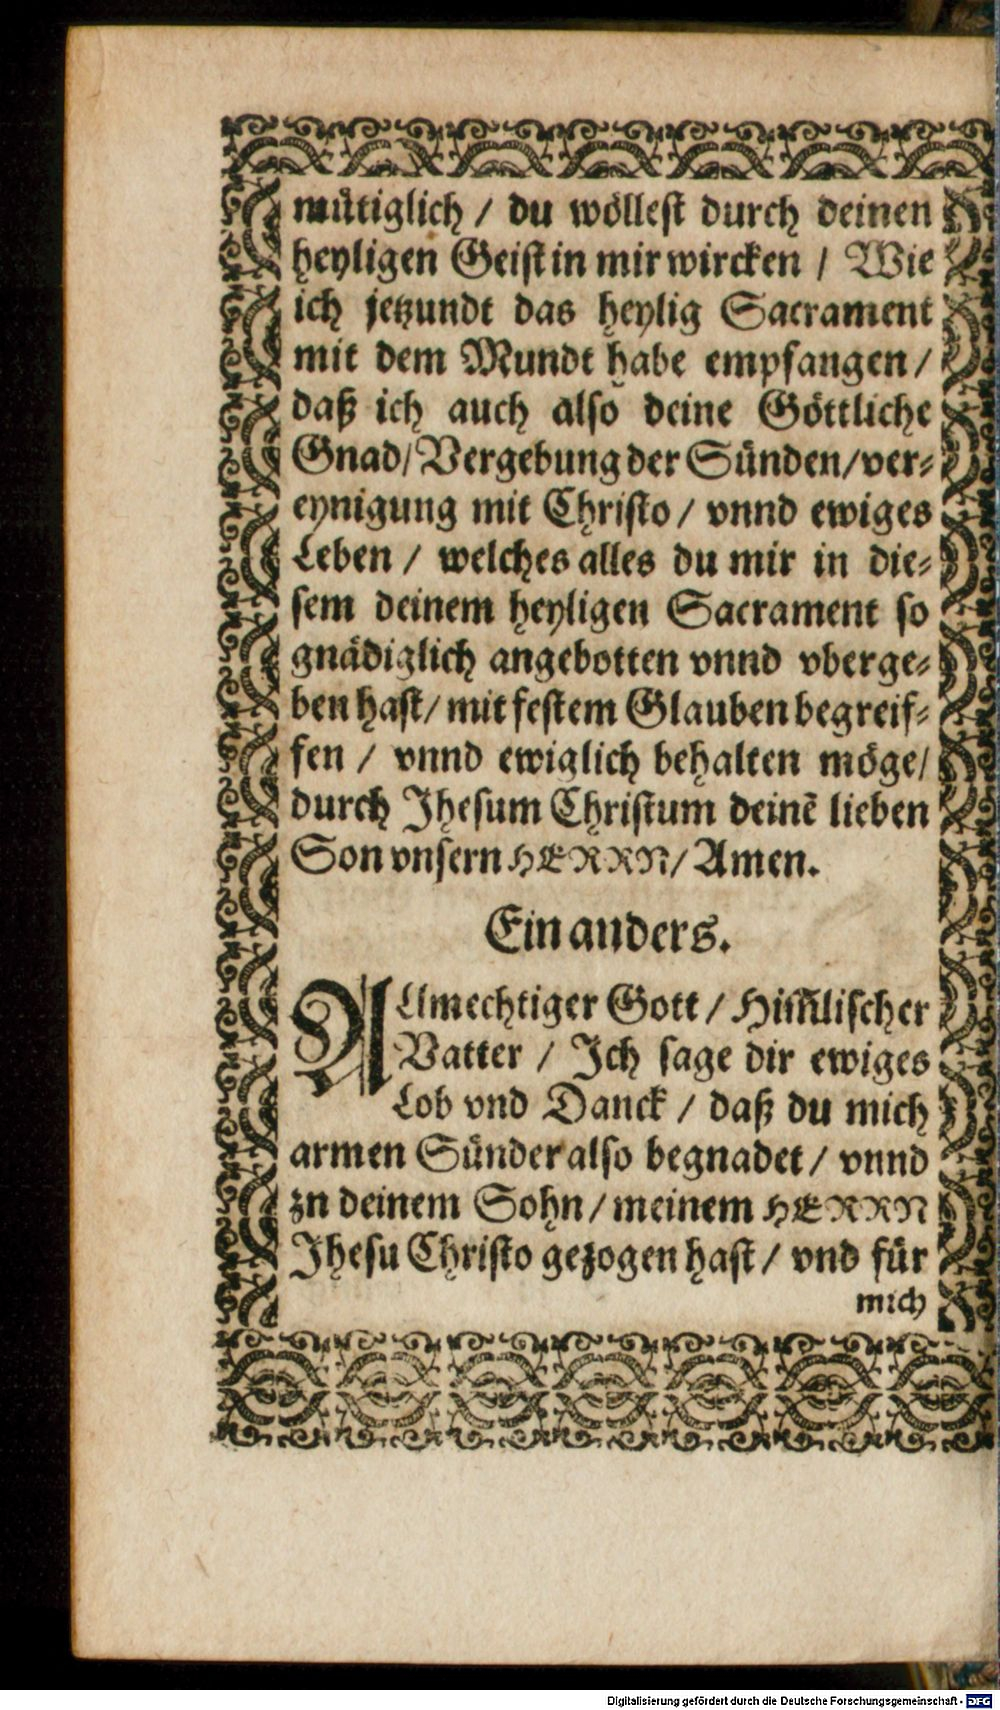 muͤtiglich / du woͤllest durch deinen
heyligen Geist in mir wircken / Wie
ich jetzundt das heylig Sacrament
mit dem Mundt habe empfangen /
daß ich auch also deine Goͤttliche
Gnad / Vergebung der Suͤnden / ver⸗
eynigung mit Christo / vnnd ewiges
Leben / welches alles du mir in die⸗
sem deinem heyligen Sacrament so
gnaͤdiglich angebotten vnnd vberge⸗
ben hast / mit festem Glauben begreif⸗
fen / vnnd ewiglich behalten moͤge /
durch Jhesum Christum deinē lieben
Son vnsern HERRN / Amen.
Ein anders.
ALlmechtiger Gott / Him̄lischer
Vatter / Jch sage dir ewiges
Lob vnd Danck / daß du mich
armen Suͤnder also begnadet / vnnd
zn deinem Sohn / meinem HERRN
Jhesu Christo gezogen hast / vnd fuͤr
mich
Digitalisierung gefördert durch die Deutsche Forschungsgemeinschaft - DFG